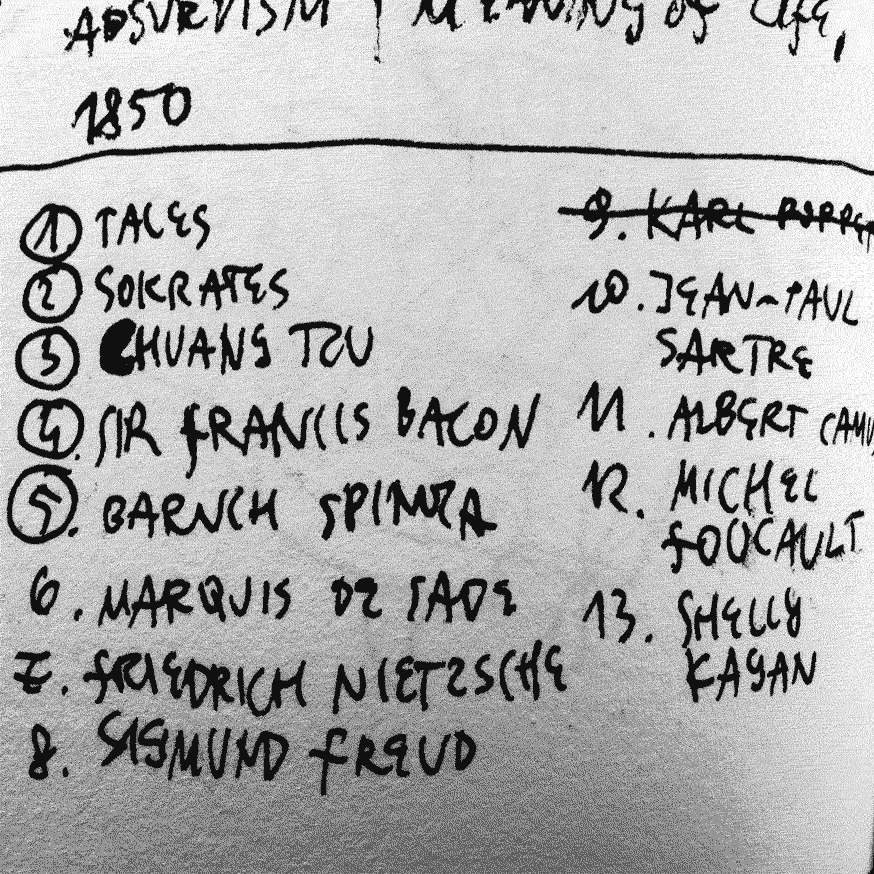 ABSURDISM | MEANING of life,
1850
1 TALES
2 SOKRATES
3 CHUANG TZU
4. SIR fRANCIS BACON
5. BARUCH SPINOZA
6. MARQUIS DE SADE
7. fRIEDRICH NIETZSCHE
8. SIGMUND fREUD
9. KARL POPPER
10. JEAN-PAUL
SARTRE
11. ALBERT CAMU
12. MICHEL
fOUCAULT
13. SHELLY
KAGAN